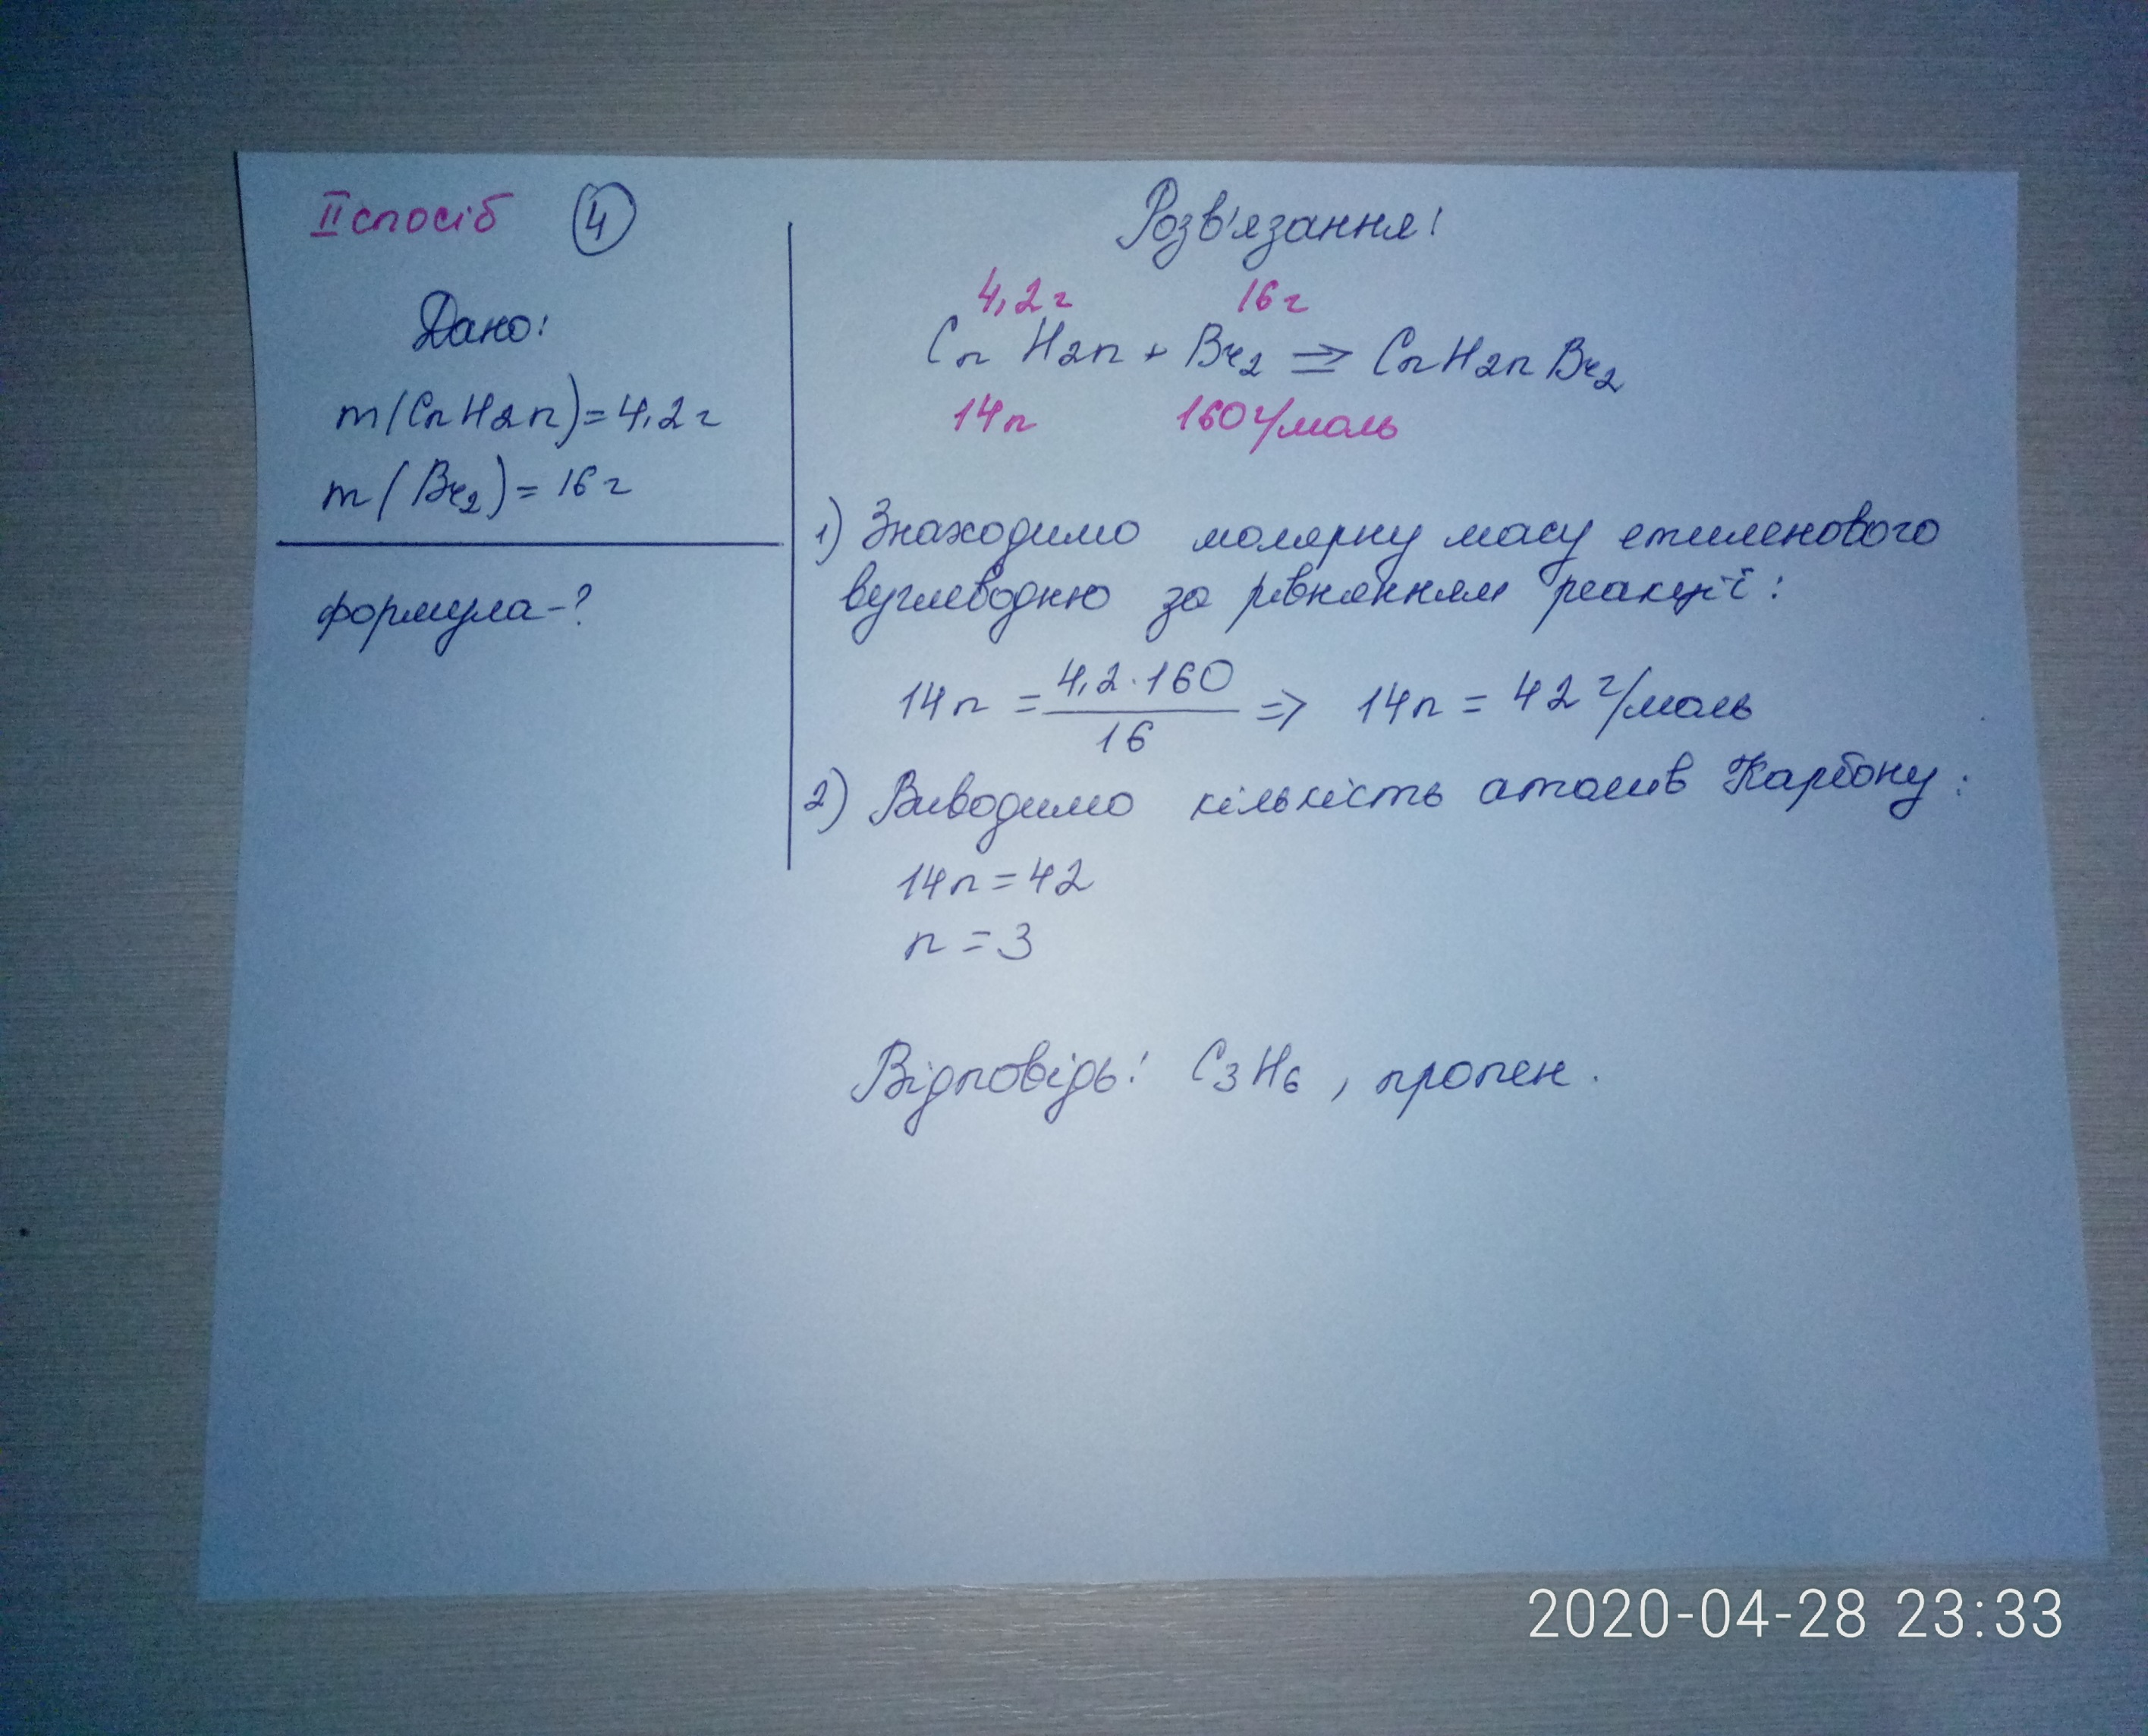 II спосіб 4
Дано:
m(CnH2n)=4,2г
m(Br2)=16г
формула-?
Розв'язання:
4,2г 16г
CnH2n + Br2 ⇒ CnH2nBr2
14n 160г/моль
1) Знаходимо молярну масу етиленового
вуглеводню за рівнянням реакції:
14n = 4,2·160/16 => 14n = 42 г/моль
2) Виводимо кількість атомів Карбону:
14n=42
n=3
Відповідь: C3H6, пропен.
2020-04-28 23:33